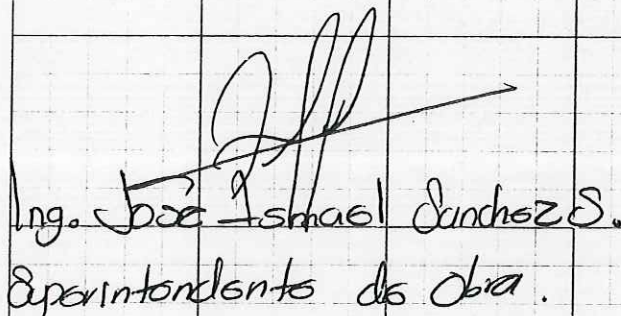 Ing. José Ismael Sanchez S.
Superintendente de Obra.